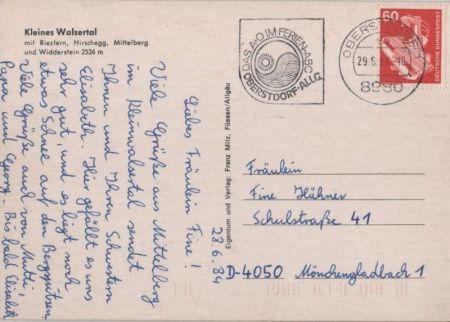 Kleines Walsertal
mit Riezlern, Hirschegg, Mittelberg
und Widderstein 2536 m
28.6.84
Liebes Fräulein Fine!
Viele Grüße aus Mittelberg
im Kleinwalsertal sendet
Ihnen und Ihren Schwestern
Elisabeth. Hier gefällt es uns
sehr gut, und es liegt noch
etwas Schnee auf den Berggipfeln.
Viele Grüße auch von Mutti,
Papa und Georg. Bis bald Elisabeth
Eigentum und Verlag: Franz Milz, Füssen/Allgäu
DAS A-O IM FERIEN-ABC
OBERSTDORF-ALLG.
8980
60
DEUTSCHE BUNDESPOST
Fräulein
Fine Hähner
Schulstraße 41
D-4050 Mönchengladbach 1